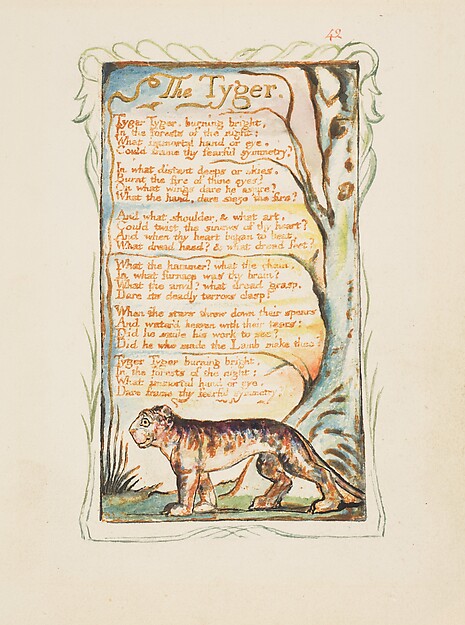 42
The Tyger.
Tyger Tyger, burning bright,
In the forests of the night:
What immortal hand or eye,
Could frame thy fearful symmetry?
In what distant deeps or skies,
Burnt the fire of thine eyes?
On what wings dare he aspire?
What the hand, dare sieze the fire?
And what shoulder, & what art,
Could twist the sinews of thy heart?
And when thy heart began to beat,
What dread hand? & what dread feet?
What the hammer? what the chain,
In what furnace was thy brain?
What the anvil? what dread grasp,
Dare its deadly terrors clasp?
When the stars threw down their spears
And water'd heaven with their tears:
Did he smile his work to see?
Did he who made the Lamb make thee?
Tyger Tyger burning bright,
In the forests of the night:
What immortal hand or eye,
Dare frame thy fearful symmetry?